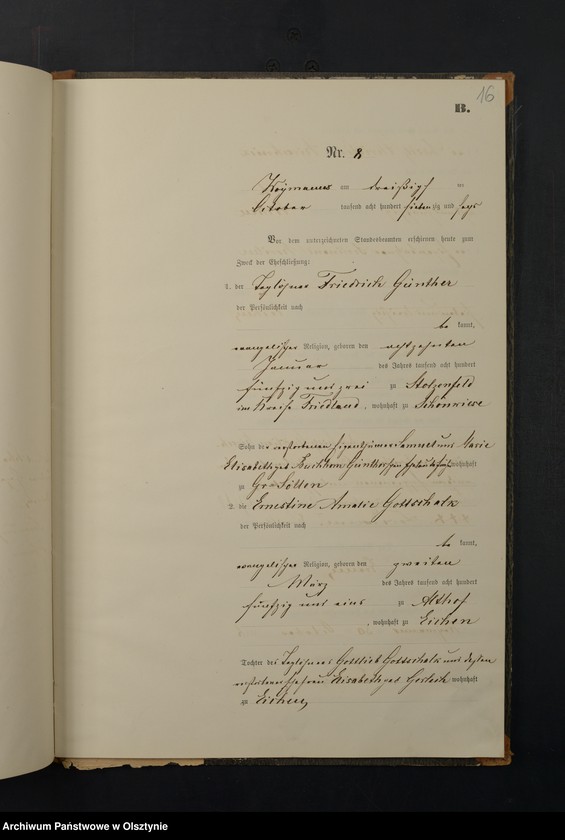 16
B.
Nr. 8
am dreißigsten
October tausend acht hundert siebenzig und sechs
Vor dem unterzeichneten Standesbeamten erschienen heute zum
Zweck der Eheschließung:
1. der Taglöhner Friedrich Günther
der Persönlichkeit nach
be kannt,
evangelischer Religion, geboren den achtzehnten
Januar des Jahres tausend acht hundert
fünfzig und zwei zu Stolzenfeld
im Kreise Friedland, wohnhaft zu Schönwiese
Sohn der verstorbenen Eigenthümer Samuel und Marie
Elisabeth geb. Günther'schen Eheleute wohnhaft
zu Gr. Sölten
2. die Ernestine Amalie Gottschalk
der Persönlichkeit nach
be kannt,
evangelischer Religion, geboren den zweiten
März des Jahres tausend acht hundert
fünfzig und eins zu Althof
, wohnhaft zu Eichen
Tochter des Taglöhners Gottlieb Gottschalk und dessen
verstorbenen Ehefrau Elisabeth geb. wohnhaft
zu Eichen,
Archiwum Państwowe w Olsztynie